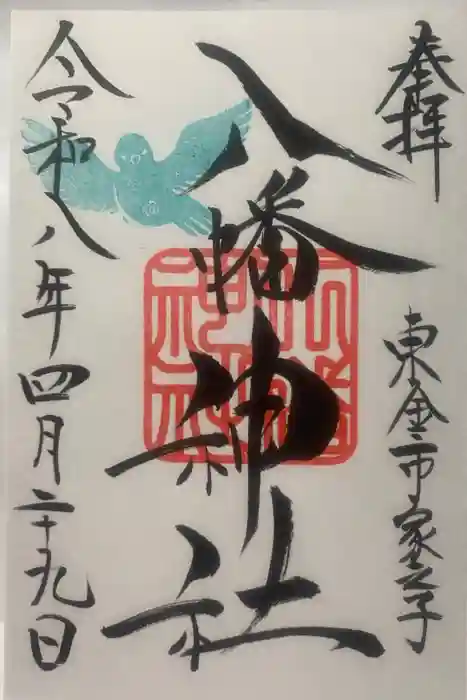 奉拝
東金市家之子
八幡神社
令和八年四月二十九日